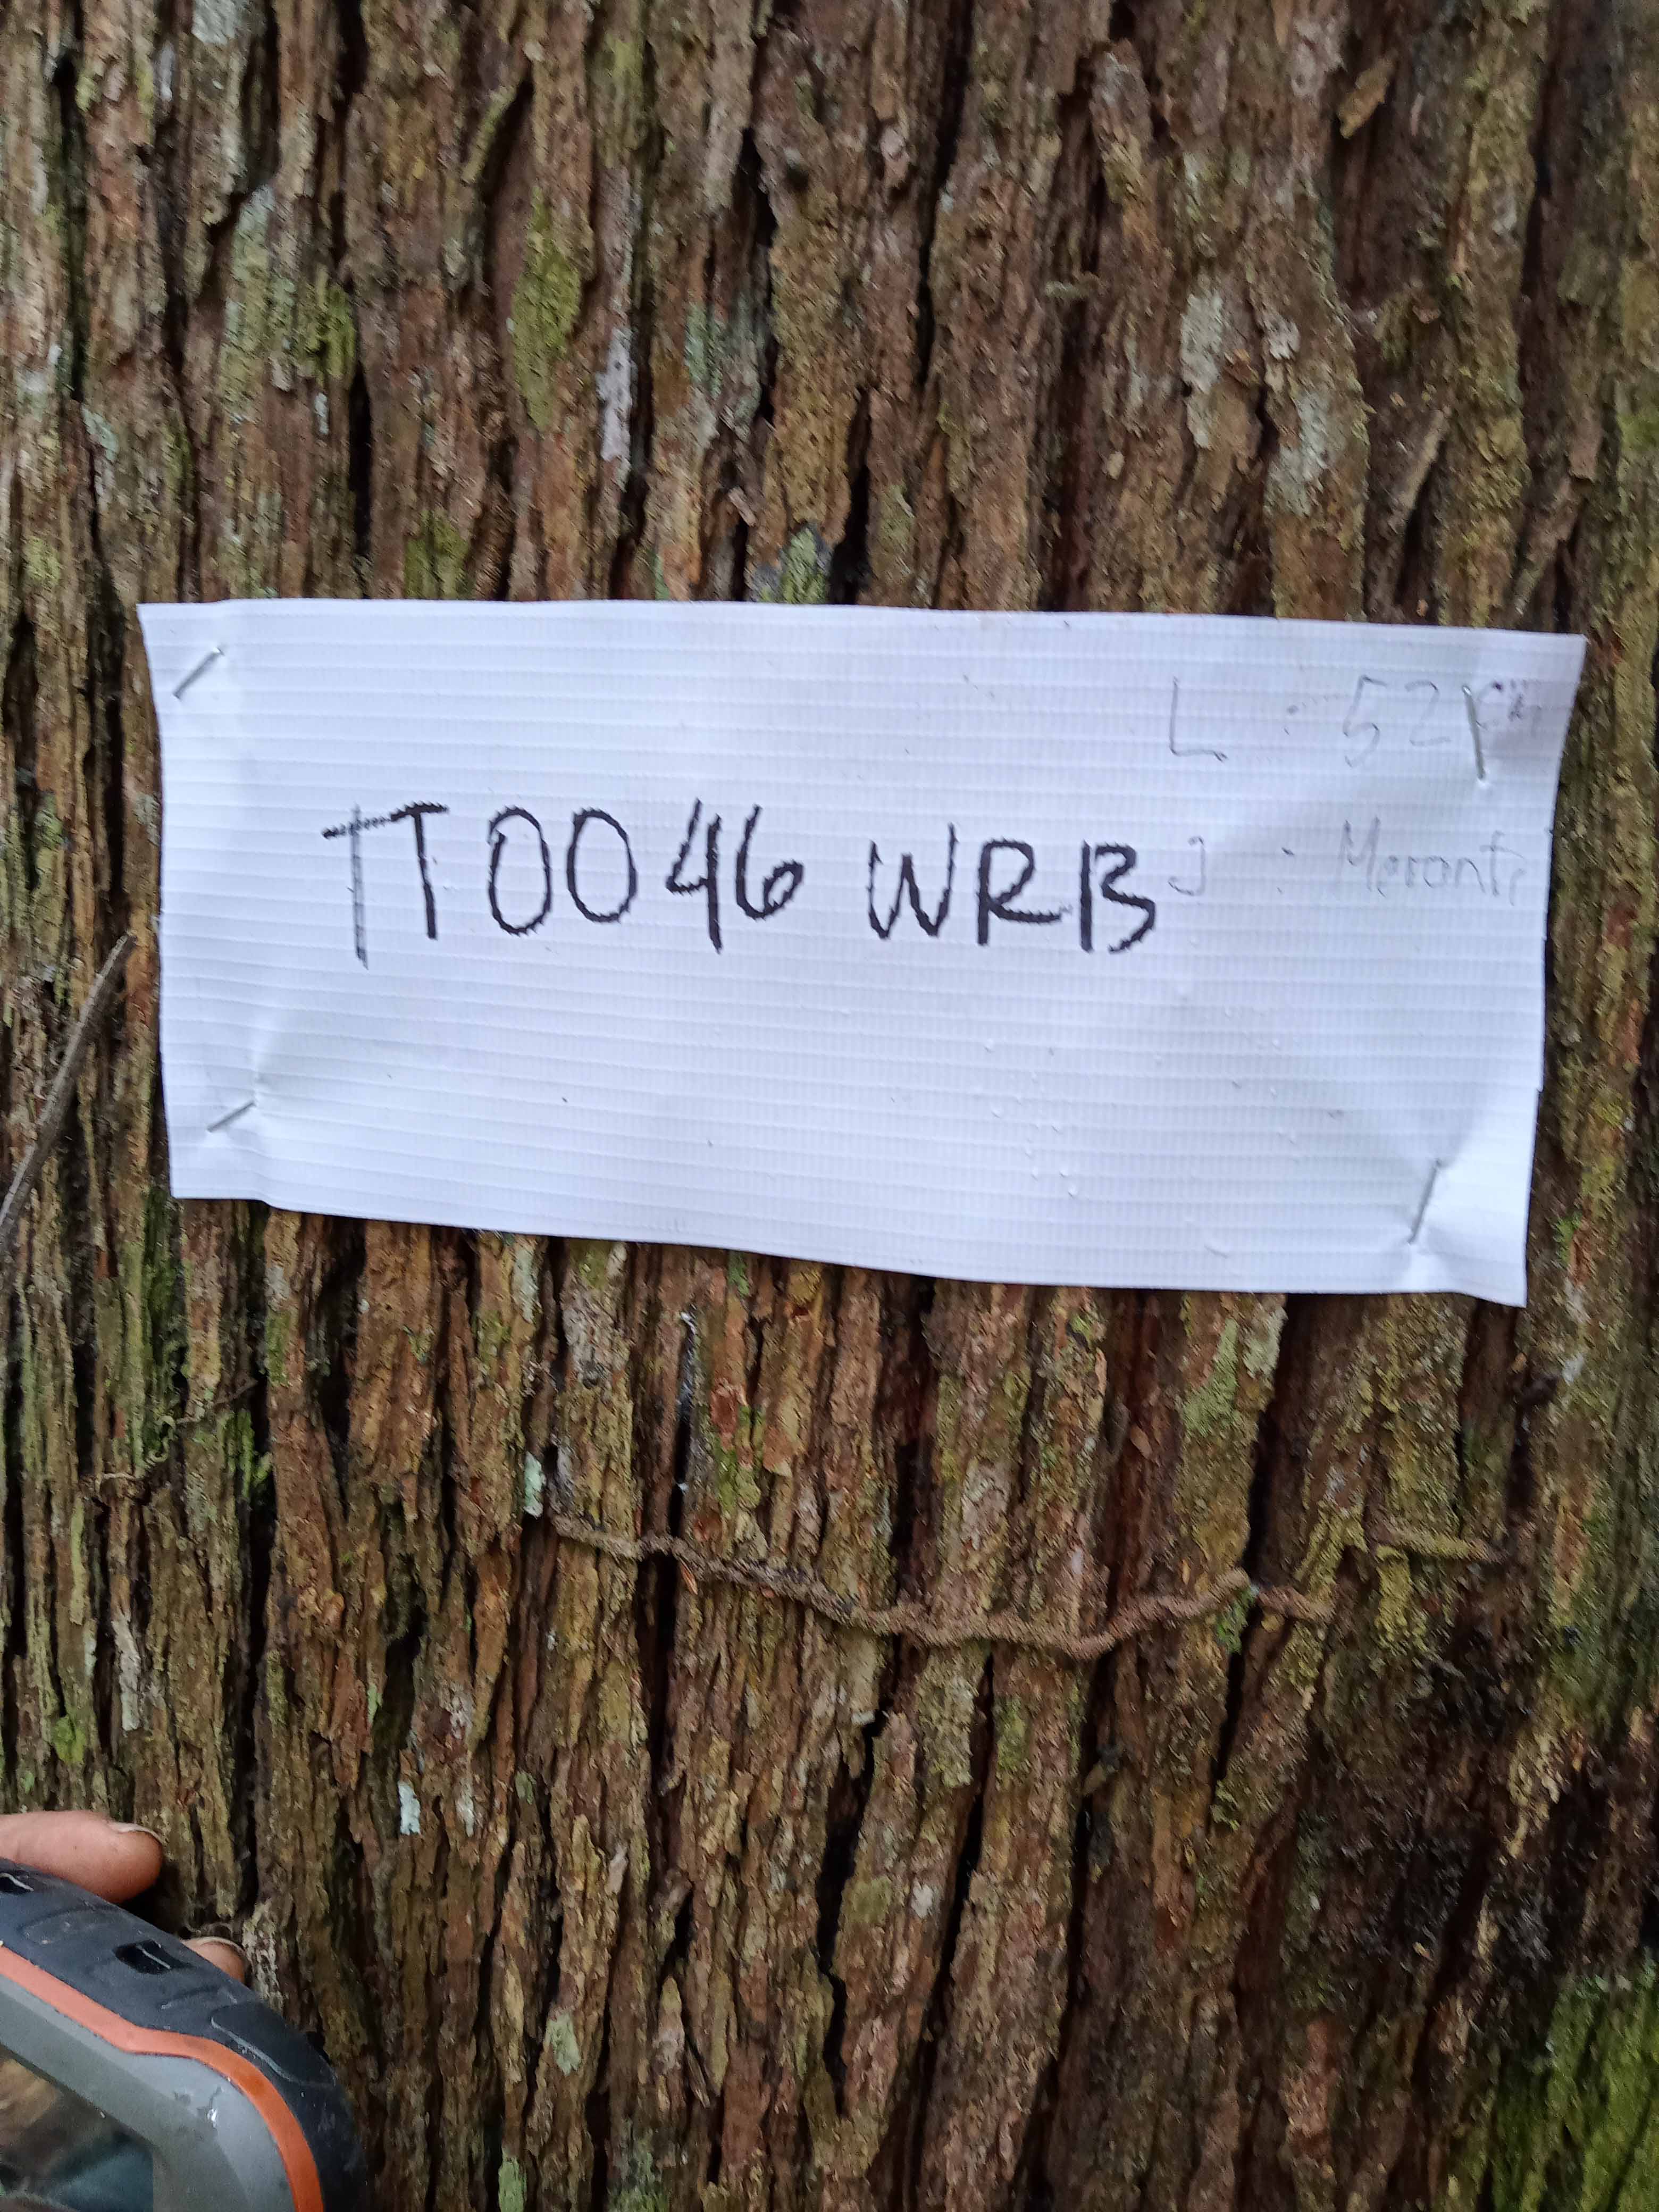 L : 52 cm
TT0046 WRB
J : Meranti